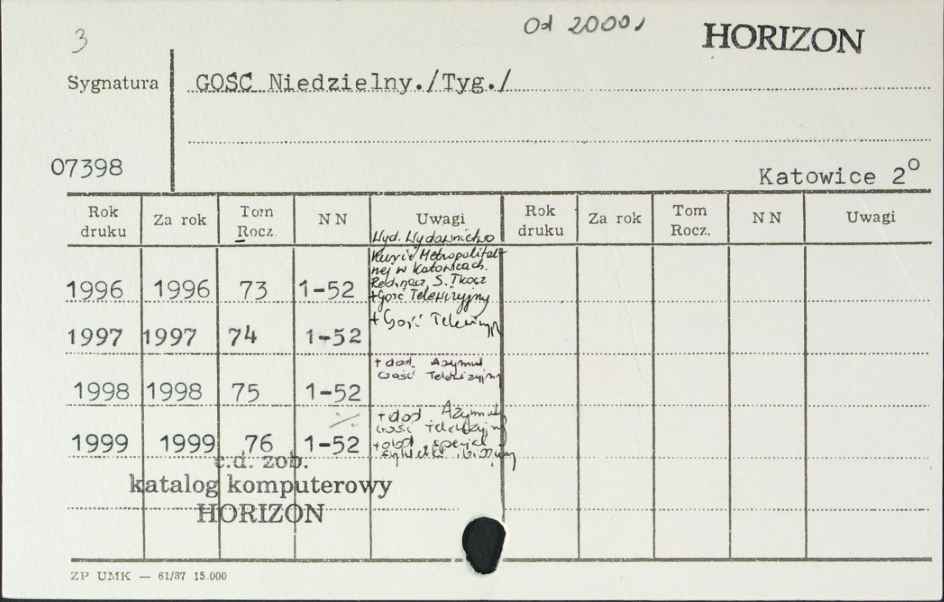 3
Od 2000
HORIZON
Sygnatura
GOSC Niedzielny./Tyg./
07398
Katowice 2°
Rok druku Za rok Tom Rocz. NN Uwagi Rok druku Za rok Tom Rocz. NN Uwagi
Wyd. Wydawnictwo
Kurii Metropolital-
nej w Katowicach.
Red. nacz. S. Tkocz
1996 1996 73 1-52 +Gość Telewizyjny
1997 1997 74 1-52 + Gość Telewizyj
+ dod. Azymut
1998 1998 75 1-52 Gość Telewizyjny
+ dod. Azymut
Gość Telewizyjny
1999 1999 76 1-52 + dod.
c.d. zob.
katalog komputerowy
HORIZON
ZP UMK — 61/87 15.000